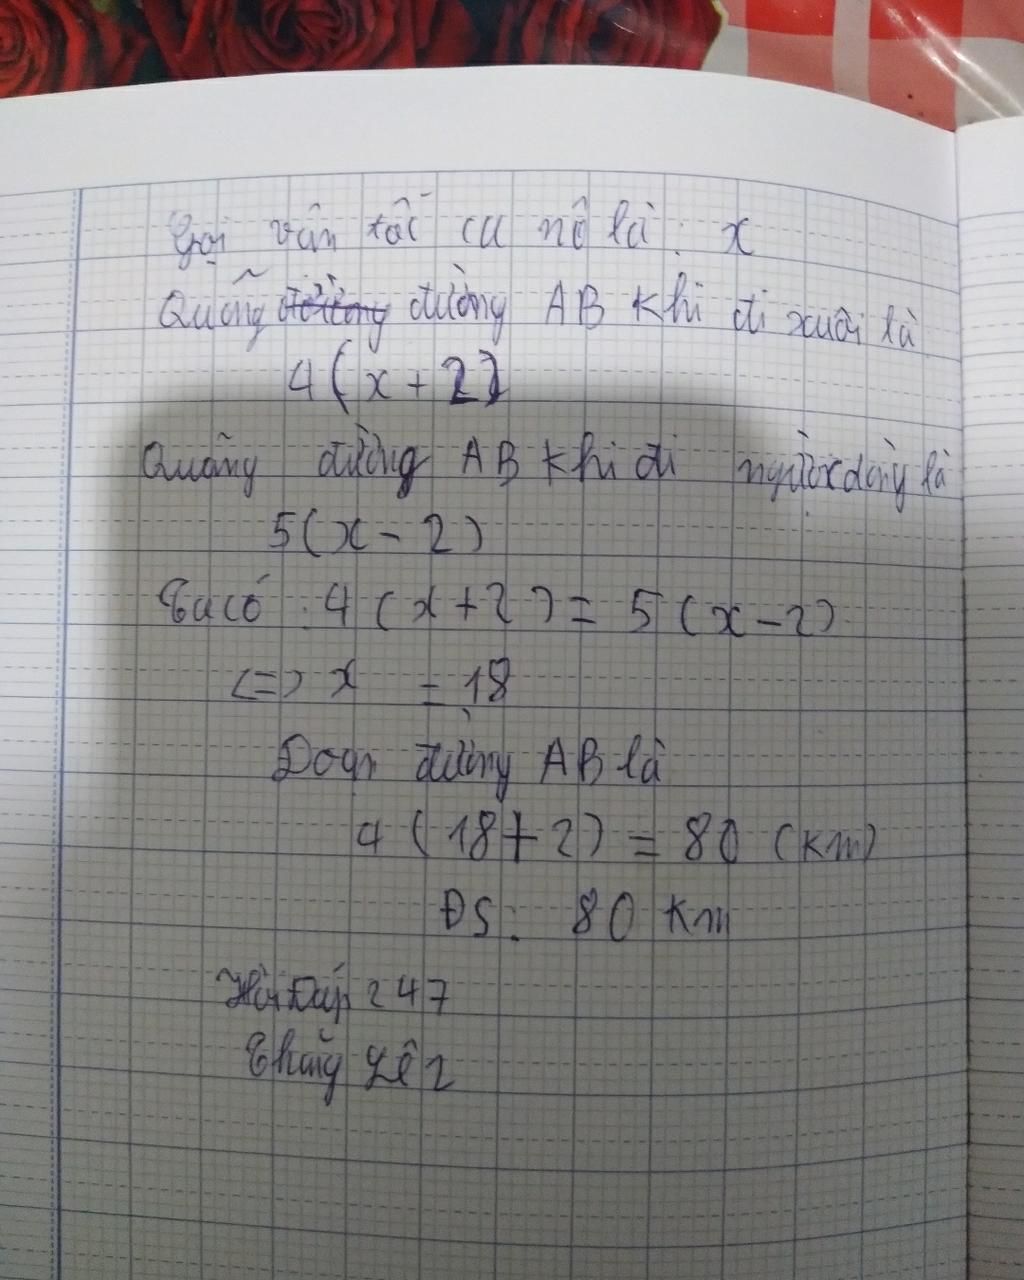 Gọi vận tốc ca nô là: x
Quãng đường AB khi đi xuôi là
4(x+2)
Quãng đường AB khi đi ngược dòng là
5(x-2)
Ta có: 4(x+2) = 5(x-2)
<=> x = 18
Đoạn đường AB là
4(18+2) = 80 (km)
ĐS: 80 Km
Hỏi Đáp 247
Thắng Lê 2